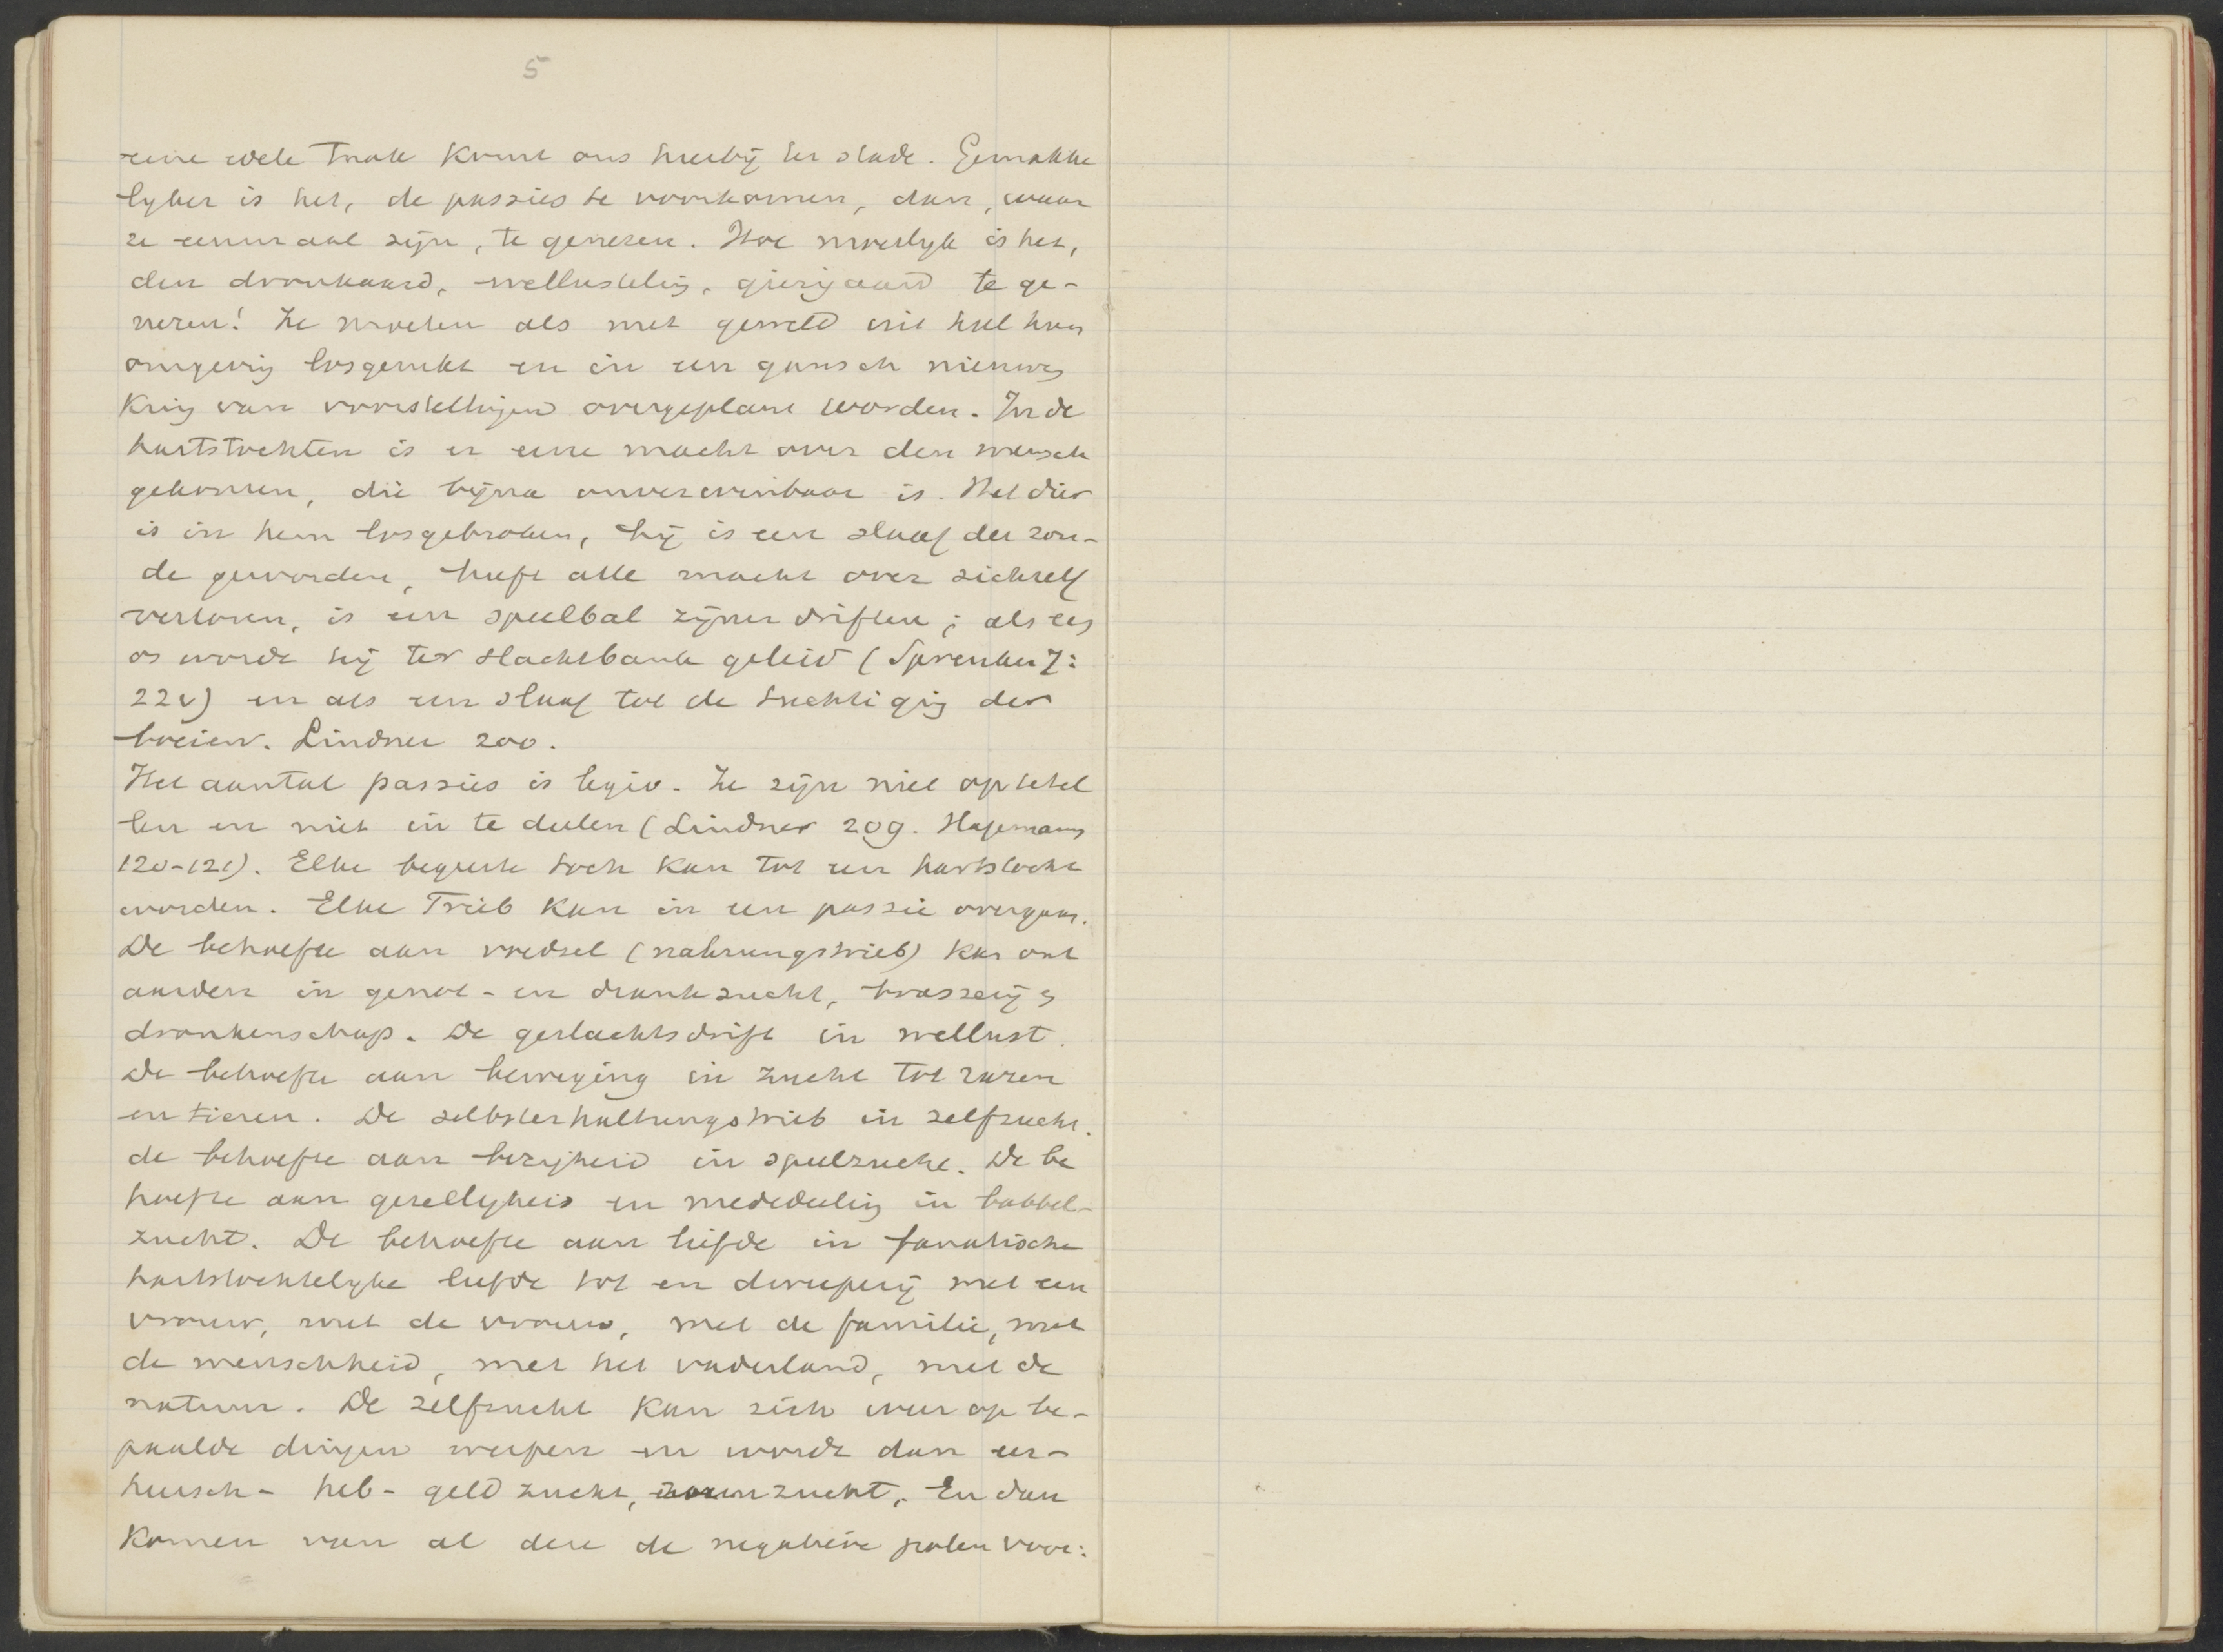 5
eene vele taak komt ons hierbij ter stade. Gemakke
lyker is het, de passies te voorkomen, dan, waar
ze eenmaal zijn, te genezen. Hoe moeilyk is het,
den dronkaard, wellusteling, gierigaard te ge-
nezen! Ze moeten als met geweld uit heel hun
omgeving losgerukt en in een gansch nieuwen
Kring van voorstellingen overgeplant worden. In de
hartstochten is er eene macht over den mensch
gekomen, die bijna onverwinbaar is. Het dier
is in hem losgebroken, hij is een slaaf der zon-
de geworden, heeft alle macht over zichzelf
verloren, is een speelbal zijner driften; als een
os wordt hij ter slachtbank geleid (Spreuken 7:
22v) en als een slaaf tot de tuchtiging der
boeien. Lindner 200.
Het aantal passies is legio. Ze zijn niet op te tel
len en niet in te deelen (Lindner 209. Hagemann
120-121). Elke begeerte toch kan tot een hartstocht
worden. Elke Trieb kan in een passie overgaan.
De behoefte aan voedsel (nahrungstrieb) kan ont
aarden in genot- en drankzucht, brasserij en
dronkenschap. De geslachtsdrift in wellust.
De behoefte aan beweging in zucht tot razen
en tieren. De selbsterhaltungstrieb in zelfzucht.
de behoefte aan bezigheid in speelzucht. De be
hoefte aan gezelligheid en mededeeling in babbel-
zucht. De behoefte aan liefde in fanatische
hartstochtelyke liefde tot en dweeperij met een
vrouw, met de vrouw, met de familie, met
de menschheid, met het vaderland, met de
natuur. De zelfzucht kan zich weer op be-
paalde dingen werpen en wordt dan eer-
heersch- heb- geld zucht, zucht. En dan
Komen van al deze de negatieve polen voor: